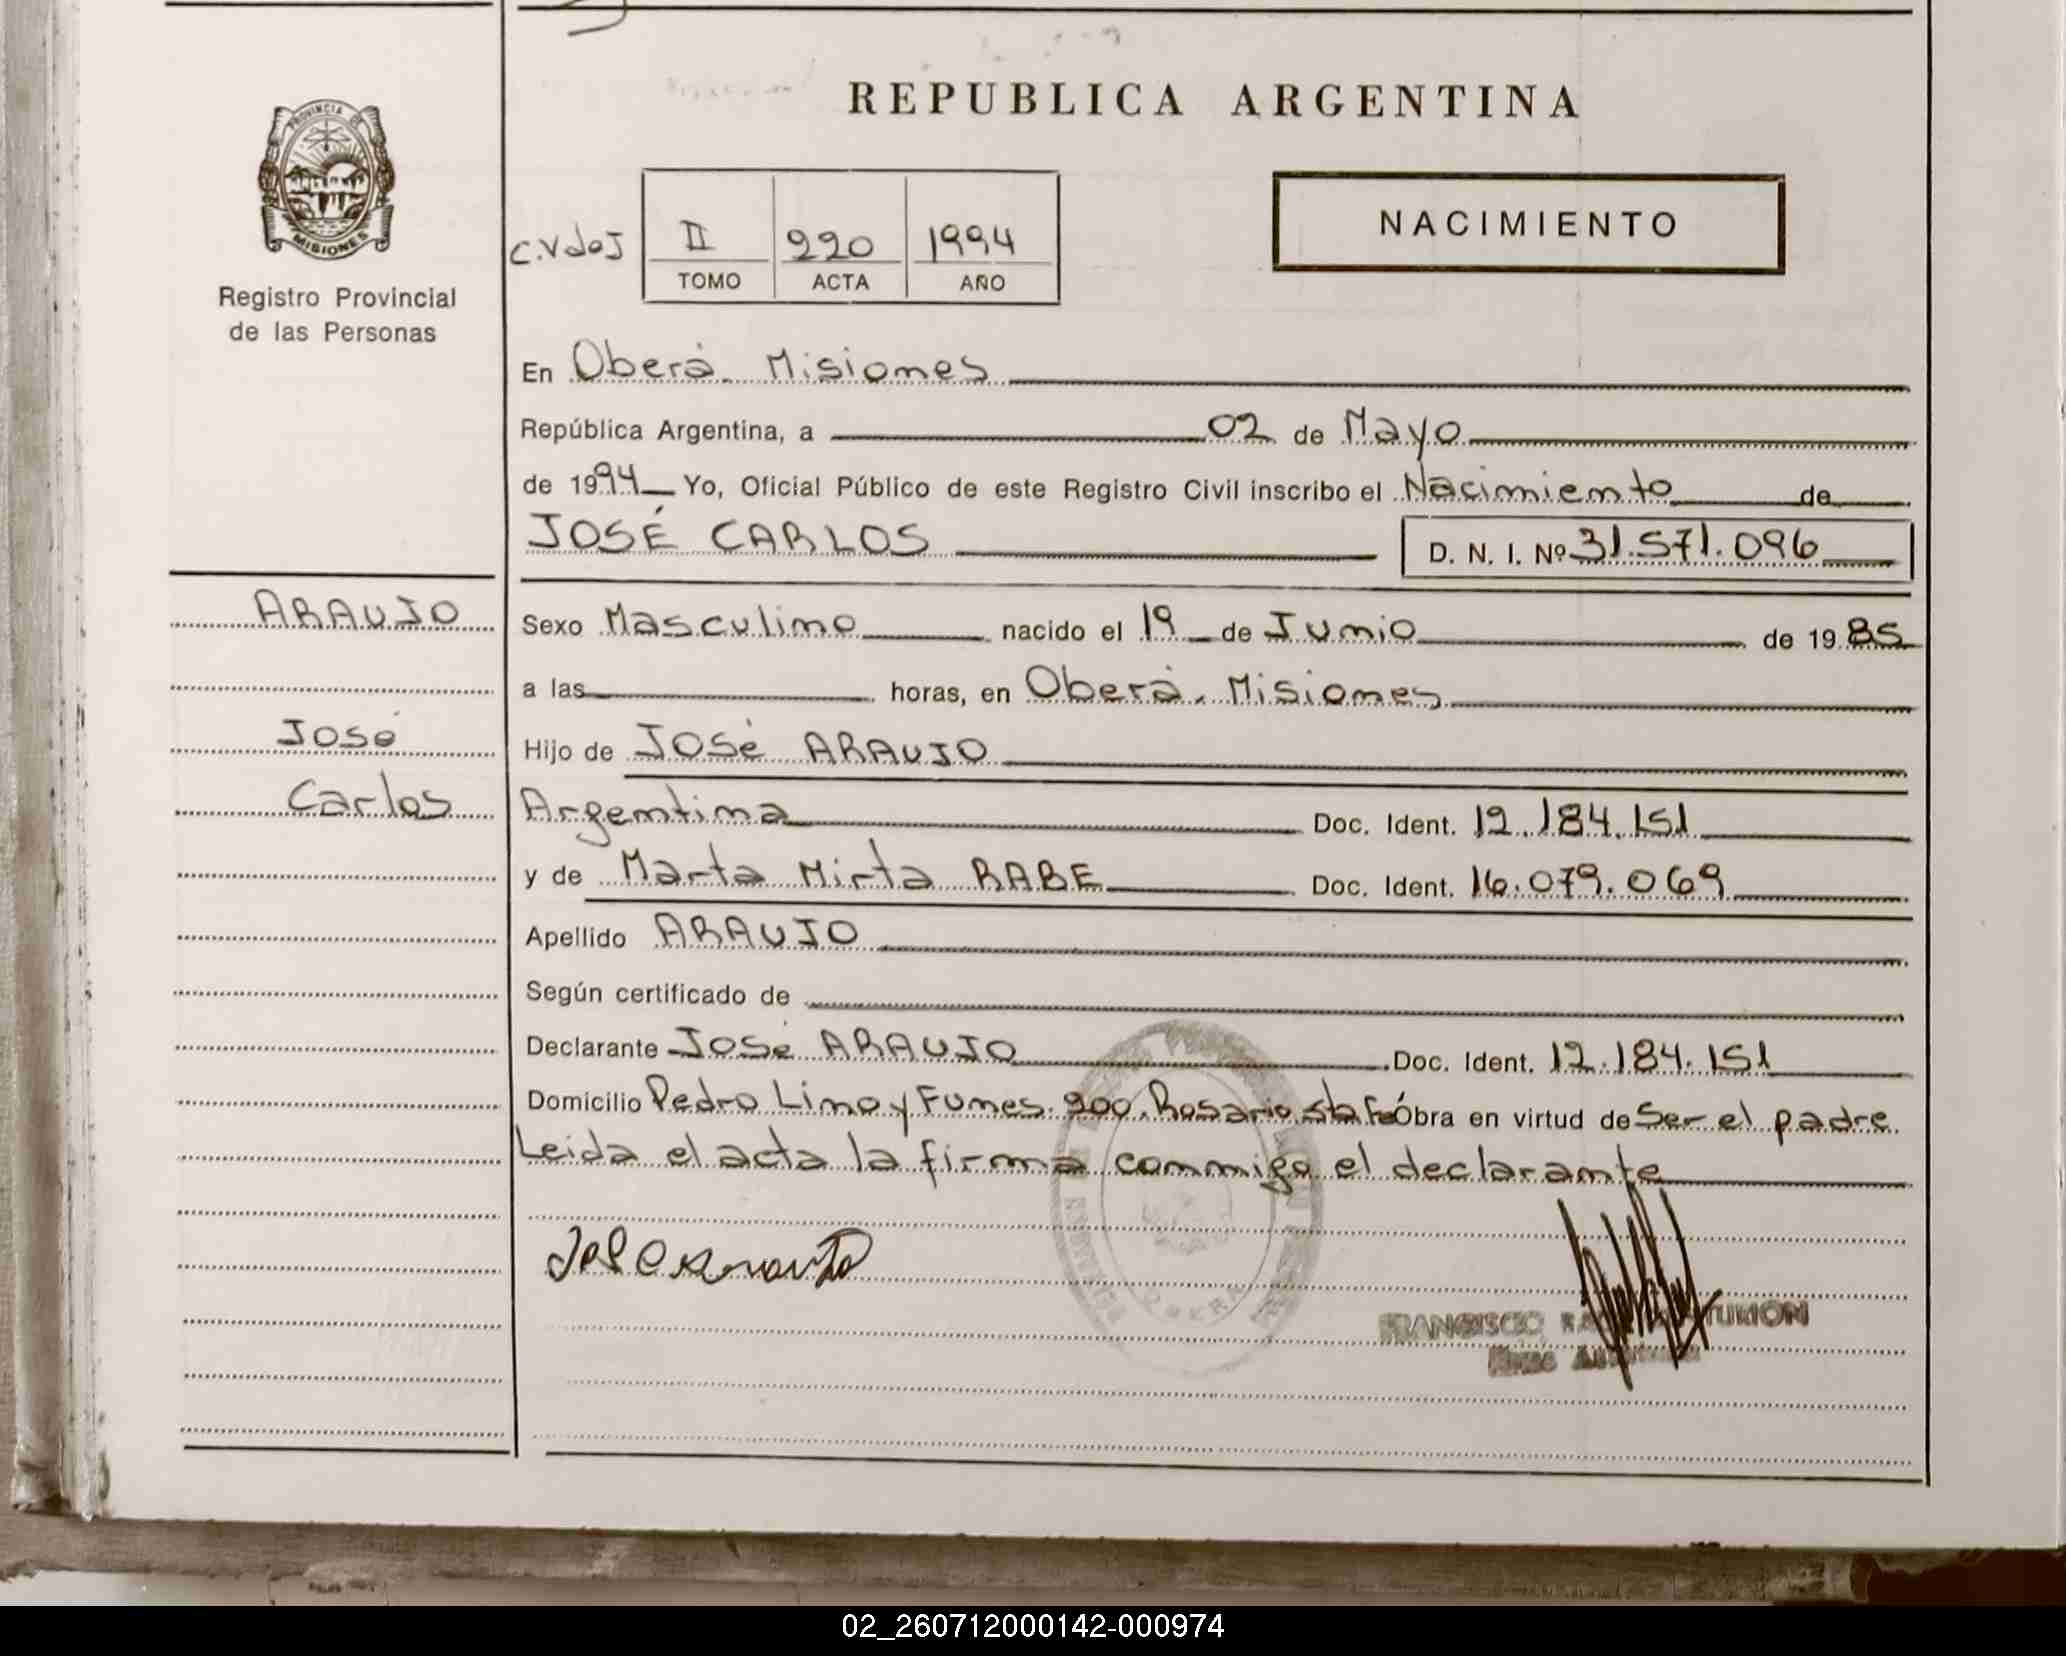 REPUBLICA ARGENTINA
PROVINCIA DE
MISIONES
Registro Provincial
de las Personas
C.V
II 220 1994
TOMO ACTA AÑO
NACIMIENTO
En Oberá. Misiones
República Argentina, a 02 de Mayo
de 1994 Yo, Oficial Público de este Registro Civil inscribo el Nacimiento de
JOSÉ CARLOS D. N. I. Nº 31.571.096
ARAUJO
José
Carlos
Sexo Masculino nacido el 19 de Junio de 1985
a las horas, en Oberá. Misiones
Hijo de José ARAUJO
Argentina Doc. Ident. 12.184.151
y de Marta Mirta RABE Doc. Ident. 16.079.069
Apellido ARAUJO
Según certificado de
Declarante José ARAUJO Doc. Ident. 12.184.151
Domicilio Pedro Lino y Funes. 900. Rosario Sta Fe Obra en virtud de Ser el padre
Leida el acta la firma conmigo el declarante
FRANCISCO
02_260712000142-000974